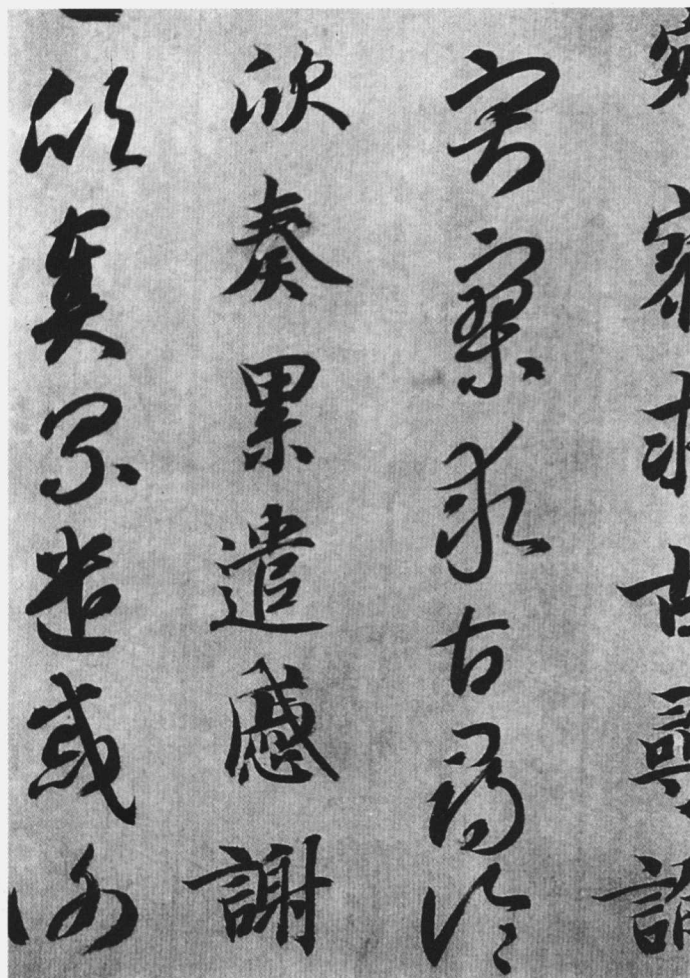 寂寥求古尋論
寂寥求古尋論
欣奏累遣慼謝
欣奏累遣慼謝